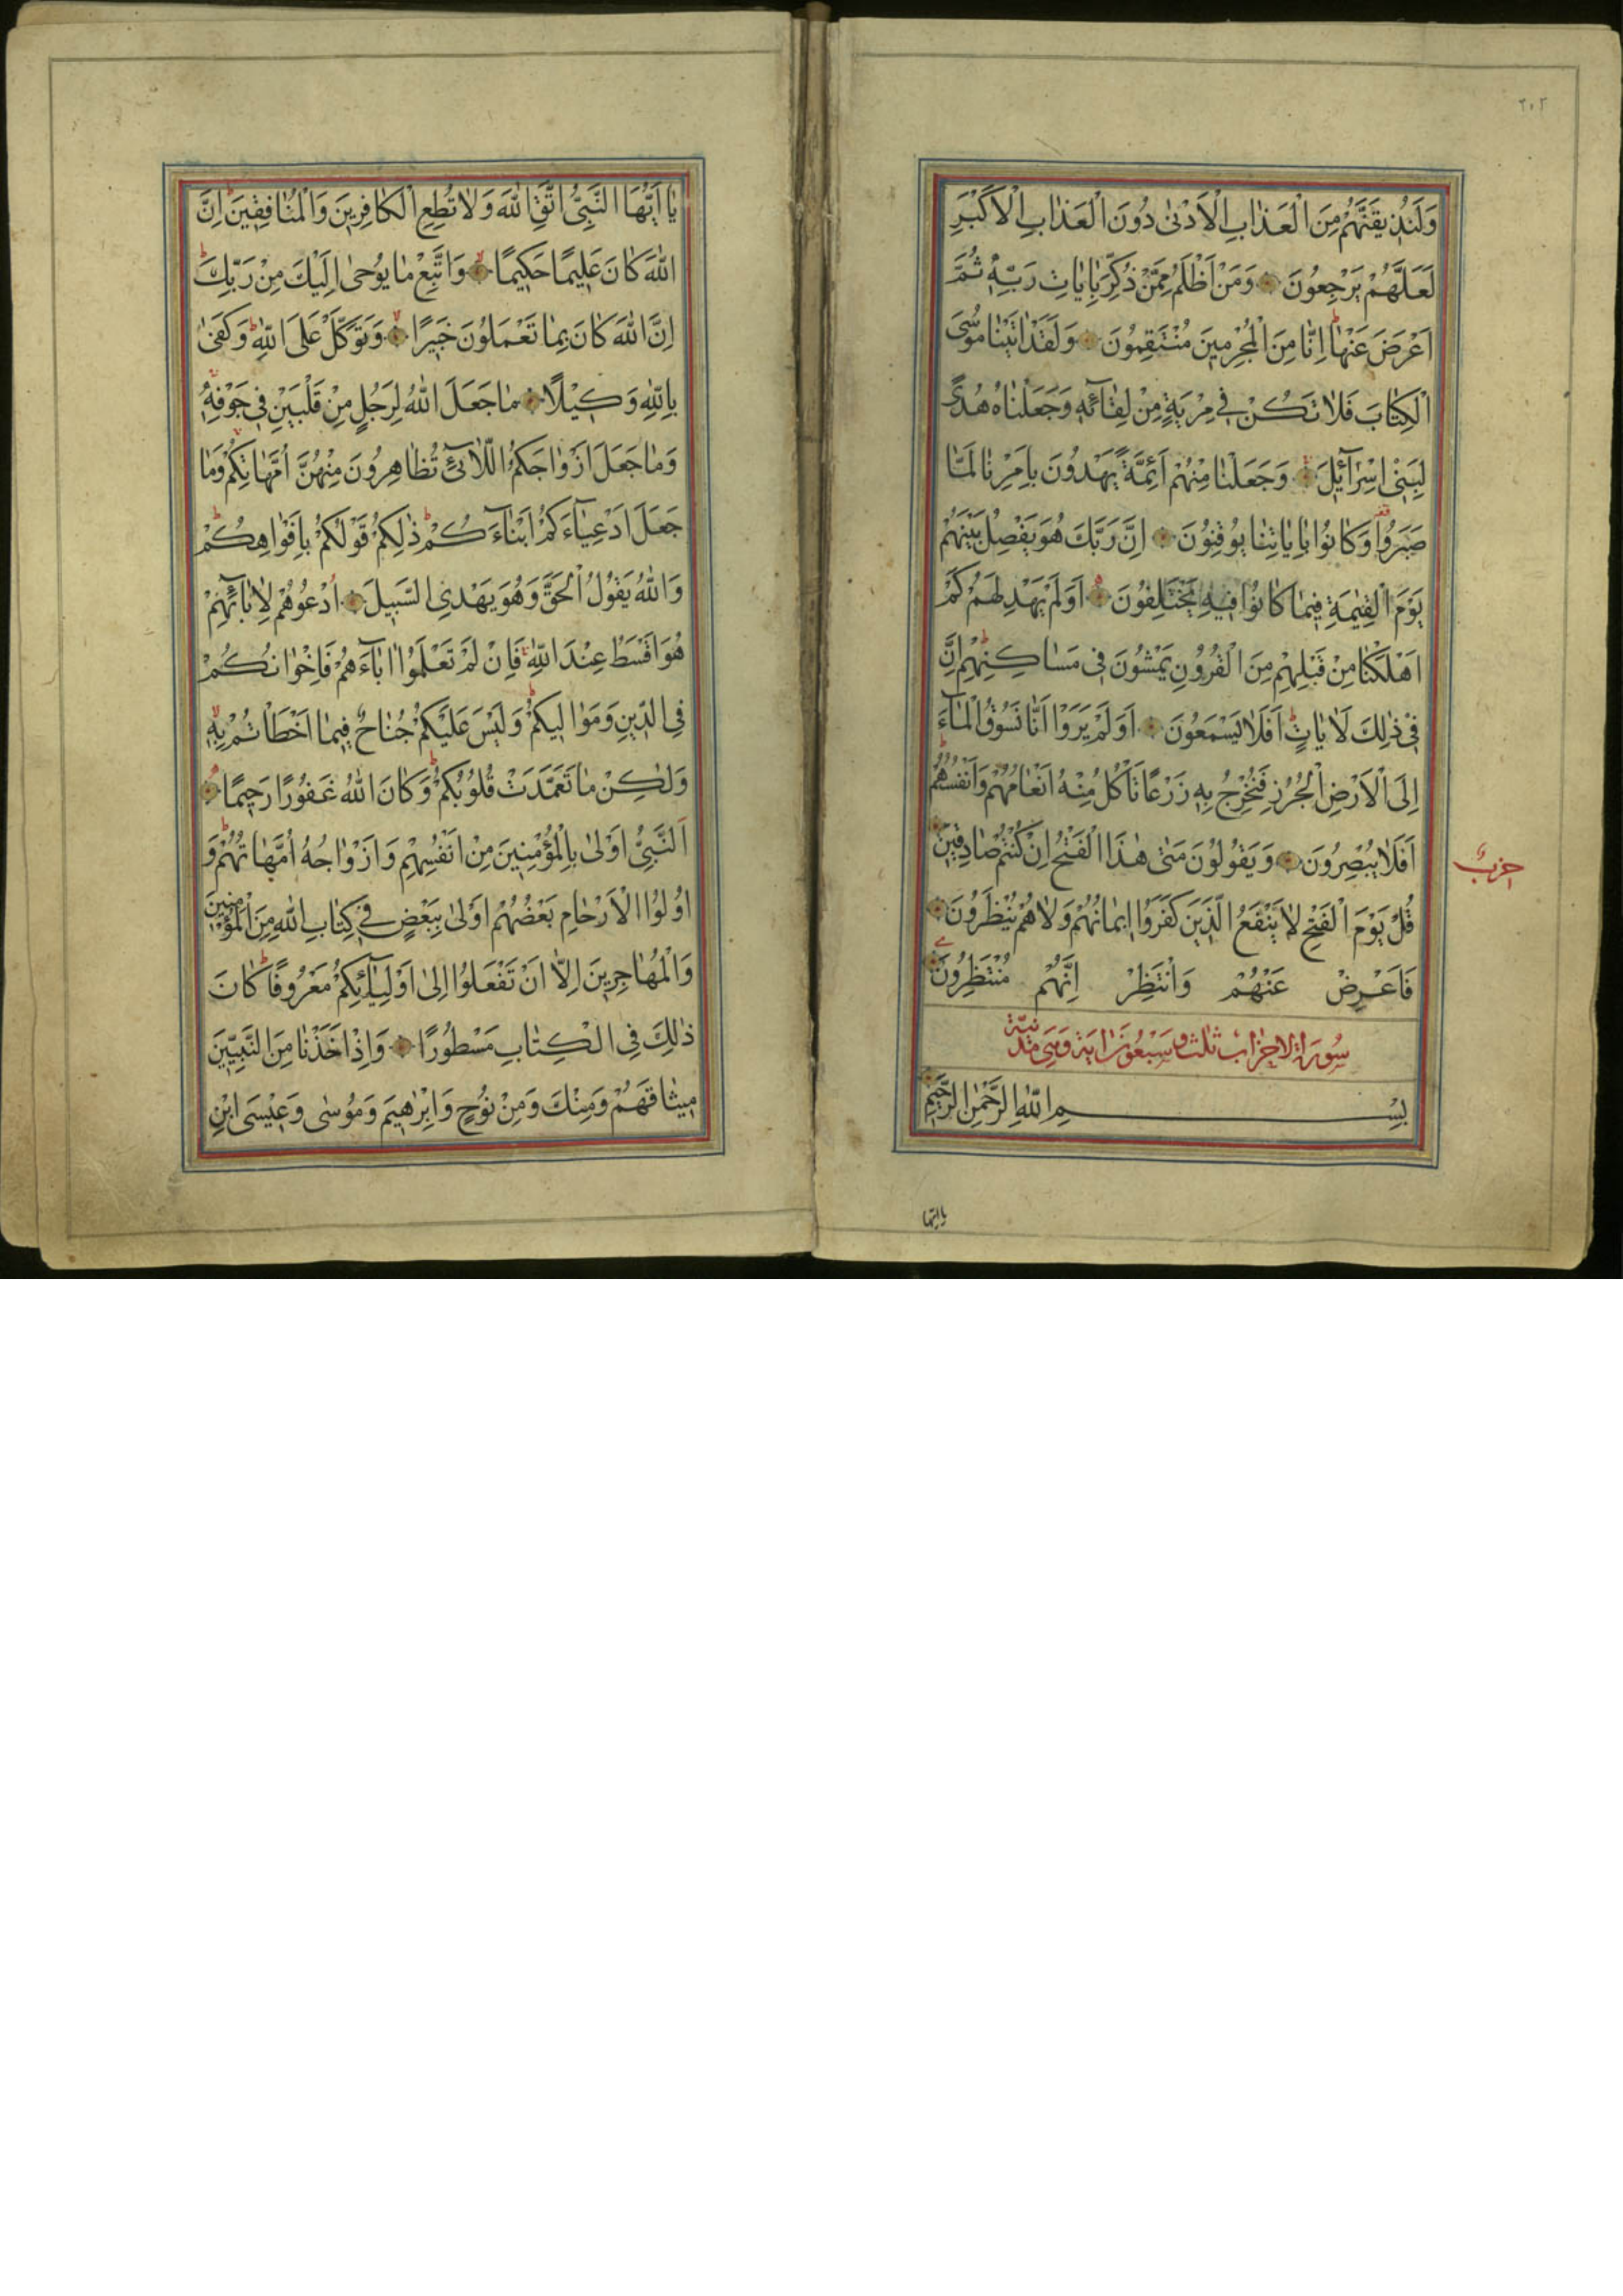 ٢٠٢
وَلَنُذِيقَنَّهُمْ مِنَ الْعَذَابِ الْاَدْنٰى دُونَ الْعَذَابِ الْاَكْبَرِ
لَعَلَّهُمْ يَرْجِعُونَ وَمَنْ اَظْلَمُ مِمَّنْ ذُكِّرَ بِاٰيَاتِ رَبِّهٖ ثُمَّ
اَعْرَضَ عَنْهَا اِنَّا مِنَ الْمُجْرِمِينَ مُنْتَقِمُونَ وَلَقَدْ اٰتَيْنَا مُوسَى
الْكِتَابَ فَلَا تَكُنْ فِي مِرْيَةٍ مِنْ لِقَائِهٖ وَجَعَلْنَاهُ هُدًى
لِبَنِي اِسْرَائِيلَ وَجَعَلْنَا مِنْهُمْ اَئِمَّةً يَهْدُونَ بِاَمْرِنَا لَمَّا
صَبَرُوا وَكَانُوا بِاٰيَاتِنَا يُوقِنُونَ اِنَّ رَبَّكَ هُوَ يَفْصِلُ بَيْنَهُمْ
يَوْمَ الْقِيٰمَةِ فِيمَا كَانُوا فِيهِ يَخْتَلِفُونَ اَوَلَمْ يَهْدِ لَهُمْ كَمْ
اَهْلَكْنَا مِنْ قَبْلِهِمْ مِنَ الْقُرُونِ يَمْشُونَ فِي مَسَاكِنِهِمْ اِنَّ
فِي ذٰلِكَ لَاٰيَاتٍ اَفَلَا يَسْمَعُونَ اَوَلَمْ يَرَوْا اَنَّا نَسُوقُ الْمَاءَ
اِلَى الْاَرْضِ الْجُرُزِ فَنُخْرِجُ بِهٖ زَرْعًا تَأْكُلُ مِنْهُ اَنْعَامُهُمْ وَاَنْفُسُهُمْ
اَفَلَا يُبْصِرُونَ وَيَقُولُونَ مَتٰى هٰذَا الْفَتْحُ اِنْ كُنْتُمْ صَادِقِينَ
حزب
قُلْ يَوْمَ الْفَتْحِ لَا يَنْفَعُ الَّذِينَ كَفَرُوا اِيمَانُهُمْ وَلَا هُمْ يُنْظَرُونَ
فَاَعْرِضْ عَنْهُمْ وَانْتَظِرْ اِنَّهُمْ مُنْتَظِرُونَ
سُورَةُ الاحزاب ثلث وسبعون اية وهي مدنية
بِسْمِ اللّٰهِ الرَّحْمٰنِ الرَّحِيمِ
يا ايها
يَا اَيُّهَا النَّبِيُّ اتَّقِ اللّٰهَ وَلَا تُطِعِ الْكَافِرِينَ وَالْمُنَافِقِينَ اِنَّ
اللّٰهَ كَانَ عَلِيمًا حَكِيمًا وَاتَّبِعْ مَا يُوحٰى اِلَيْكَ مِنْ رَبِّكَ
اِنَّ اللّٰهَ كَانَ بِمَا تَعْمَلُونَ خَبِيرًا وَتَوَكَّلْ عَلَى اللّٰهِ وَكَفٰى
بِاللّٰهِ وَكِيلًا مَا جَعَلَ اللّٰهُ لِرَجُلٍ مِنْ قَلْبَيْنِ فِي جَوْفِهٖ
وَمَا جَعَلَ اَزْوَاجَكُمُ اللَّائِي تُظَاهِرُونَ مِنْهُنَّ اُمَّهَاتِكُمْ وَمَا
جَعَلَ اَدْعِيَاءَكُمْ اَبْنَاءَكُمْ ذٰلِكُمْ قَوْلُكُمْ بِاَفْوَاهِكُمْ
وَاللّٰهُ يَقُولُ الْحَقَّ وَهُوَ يَهْدِي السَّبِيلَ اُدْعُوهُمْ لِاٰبَائِهِمْ
هُوَ اَقْسَطُ عِنْدَ اللّٰهِ فَاِنْ لَمْ تَعْلَمُوا اٰبَاءَهُمْ فَاِخْوَانُكُمْ
فِي الدِّينِ وَمَوَالِيكُمْ وَلَيْسَ عَلَيْكُمْ جُنَاحٌ فِيمَا اَخْطَأْتُمْ بِهٖ
وَلٰكِنْ مَا تَعَمَّدَتْ قُلُوبُكُمْ وَكَانَ اللّٰهُ غَفُورًا رَحِيمًا
اَلنَّبِيُّ اَوْلٰى بِالْمُؤْمِنِينَ مِنْ اَنْفُسِهِمْ وَاَزْوَاجُهُ اُمَّهَاتُهُمْ وَ
اُولُوا الْاَرْحَامِ بَعْضُهُمْ اَوْلٰى بِبَعْضٍ فِي كِتَابِ اللّٰهِ مِنَ الْمُؤْمِنِينَ
وَالْمُهَاجِرِينَ اِلَّا اَنْ تَفْعَلُوا اِلٰى اَوْلِيَائِكُمْ مَعْرُوفًا كَانَ
ذٰلِكَ فِي الْكِتَابِ مَسْطُورًا وَاِذْ اَخَذْنَا مِنَ النَّبِيِّينَ
مِيثَاقَهُمْ وَمِنْكَ وَمِنْ نُوحٍ وَاِبْرٰهِيمَ وَمُوسٰى وَعِيسَى ابْنِ